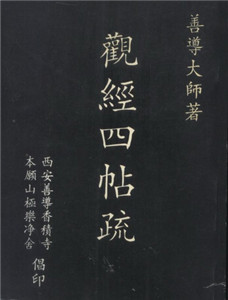 善導大師著
觀經四帖疏
西安善導香積寺
本願山極樂净舍
倡印